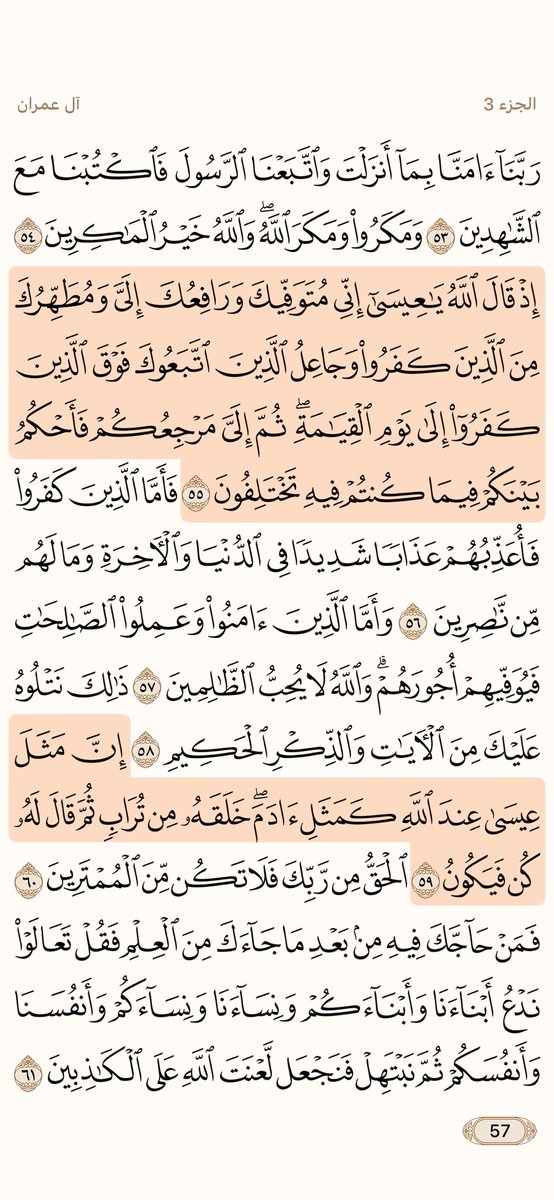 الجزء 3
آل عمران
رَبَّنَآ ءَامَنَّا بِمَآ أَنزَلْتَ وَٱتَّبَعْنَا ٱلرَّسُولَ فَٱكْتُبْنَا مَعَ
ٱلشَّٰهِدِينَ ٥٣ وَمَكَرُوا۟ وَمَكَرَ ٱللَّهُ ۖ وَٱللَّهُ خَيْرُ ٱلْمَٰكِرِينَ ٥٤
إِذْ قَالَ ٱللَّهُ يَٰعِيسَىٰٓ إِنِّى مُتَوَفِّيكَ وَرَافِعُكَ إِلَىَّ وَمُطَهِّرُكَ
مِنَ ٱلَّذِينَ كَفَرُوا۟ وَجَاعِلُ ٱلَّذِينَ ٱتَّبَعُوكَ فَوْقَ ٱلَّذِينَ
كَفَرُوٓا۟ إِلَىٰ يَوْمِ ٱلْقِيَٰمَةِ ۖ ثُمَّ إِلَىَّ مَرْجِعُكُمْ فَأَحْكُمُ
بَيْنَكُمْ فِيمَا كُنتُمْ فِيهِ تَخْتَلِفُونَ ٥٥ فَأَمَّا ٱلَّذِينَ كَفَرُوا۟
فَأُعَذِّبُهُمْ عَذَابًا شَدِيدًا فِى ٱلدُّنْيَا وَٱلْءَاخِرَةِ وَمَا لَهُم
مِّن نَّٰصِرِينَ ٥٦ وَأَمَّا ٱلَّذِينَ ءَامَنُوا۟ وَعَمِلُوا۟ ٱلصَّٰلِحَٰتِ
فَيُوَفِّيهِمْ أُجُورَهُمْ ۗ وَٱللَّهُ لَا يُحِبُّ ٱلظَّٰلِمِينَ ٥٧ ذَٰلِكَ نَتْلُوهُ
عَلَيْكَ مِنَ ٱلْءَايَٰتِ وَٱلذِّكْرِ ٱلْحَكِيمِ ٥٨ إِنَّ مَثَلَ
عِيسَىٰ عِندَ ٱللَّهِ كَمَثَلِ ءَادَمَ ۖ خَلَقَهُۥ مِن تُرَابٍ ثُمَّ قَالَ لَهُۥ
كُن فَيَكُونُ ٥٩ ٱلْحَقُّ مِن رَّبِّكَ فَلَا تَكُن مِّنَ ٱلْمُمْتَرِينَ ٦٠
فَمَنْ حَآجَّكَ فِيهِ مِنۢ بَعْدِ مَا جَآءَكَ مِنَ ٱلْعِلْمِ فَقُلْ تَعَالَوْا۟
نَدْعُ أَبْنَآءَنَا وَأَبْنَآءَكُمْ وَنِسَآءَنَا وَنِسَآءَكُمْ وَأَنفُسَنَا
وَأَنفُسَكُمْ ثُمَّ نَبْتَهِلْ فَنَجْعَل لَّعْنَتَ ٱللَّهِ عَلَى ٱلْكَٰذِبِينَ ٦١
57